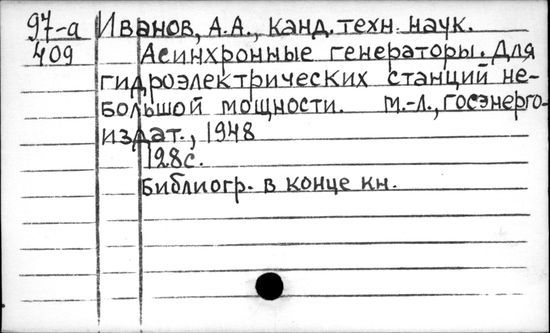 97-а Иванов, А.А., канд. техн. наук.
409 Асинхронные генераторы. Для
гидроэлектрических станций не-
большой мощности. М.-Л., Госэнерго-
издат., 1948
128с.
Библиогр. в конце кн.